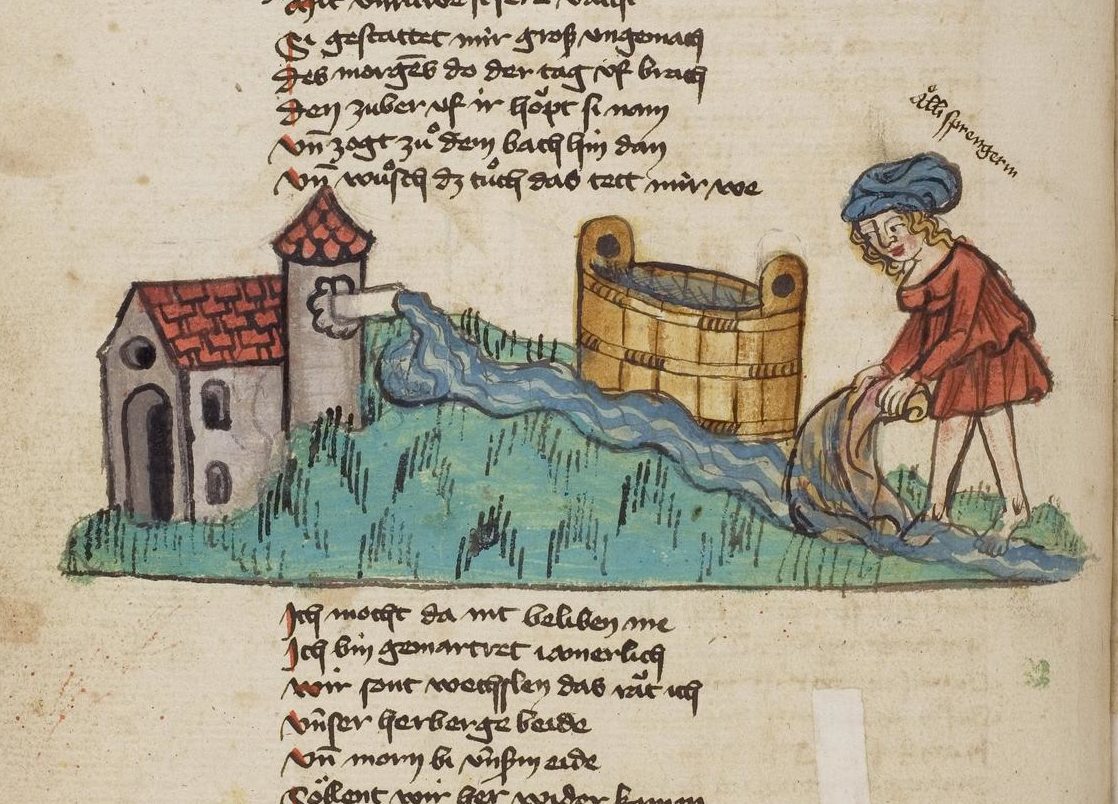 Si gestattet mir groß vngemach
Des morgēs do der tag vf brach
Den zuber vf ir hoͤpt si nam
vn̄ zogt zuͦ dem bach hin dan
vn̄ wuͦsch dz tuͦch das tett mir we
sprengerin
Ich mocht da nit beliben me
Ich bin gemartret iamerlich
wir sont wechslen das rat ich
vn̄ser herberge beide
vn̄ morn bi vn̄ßm eide
Soͤllent wir her wider komen